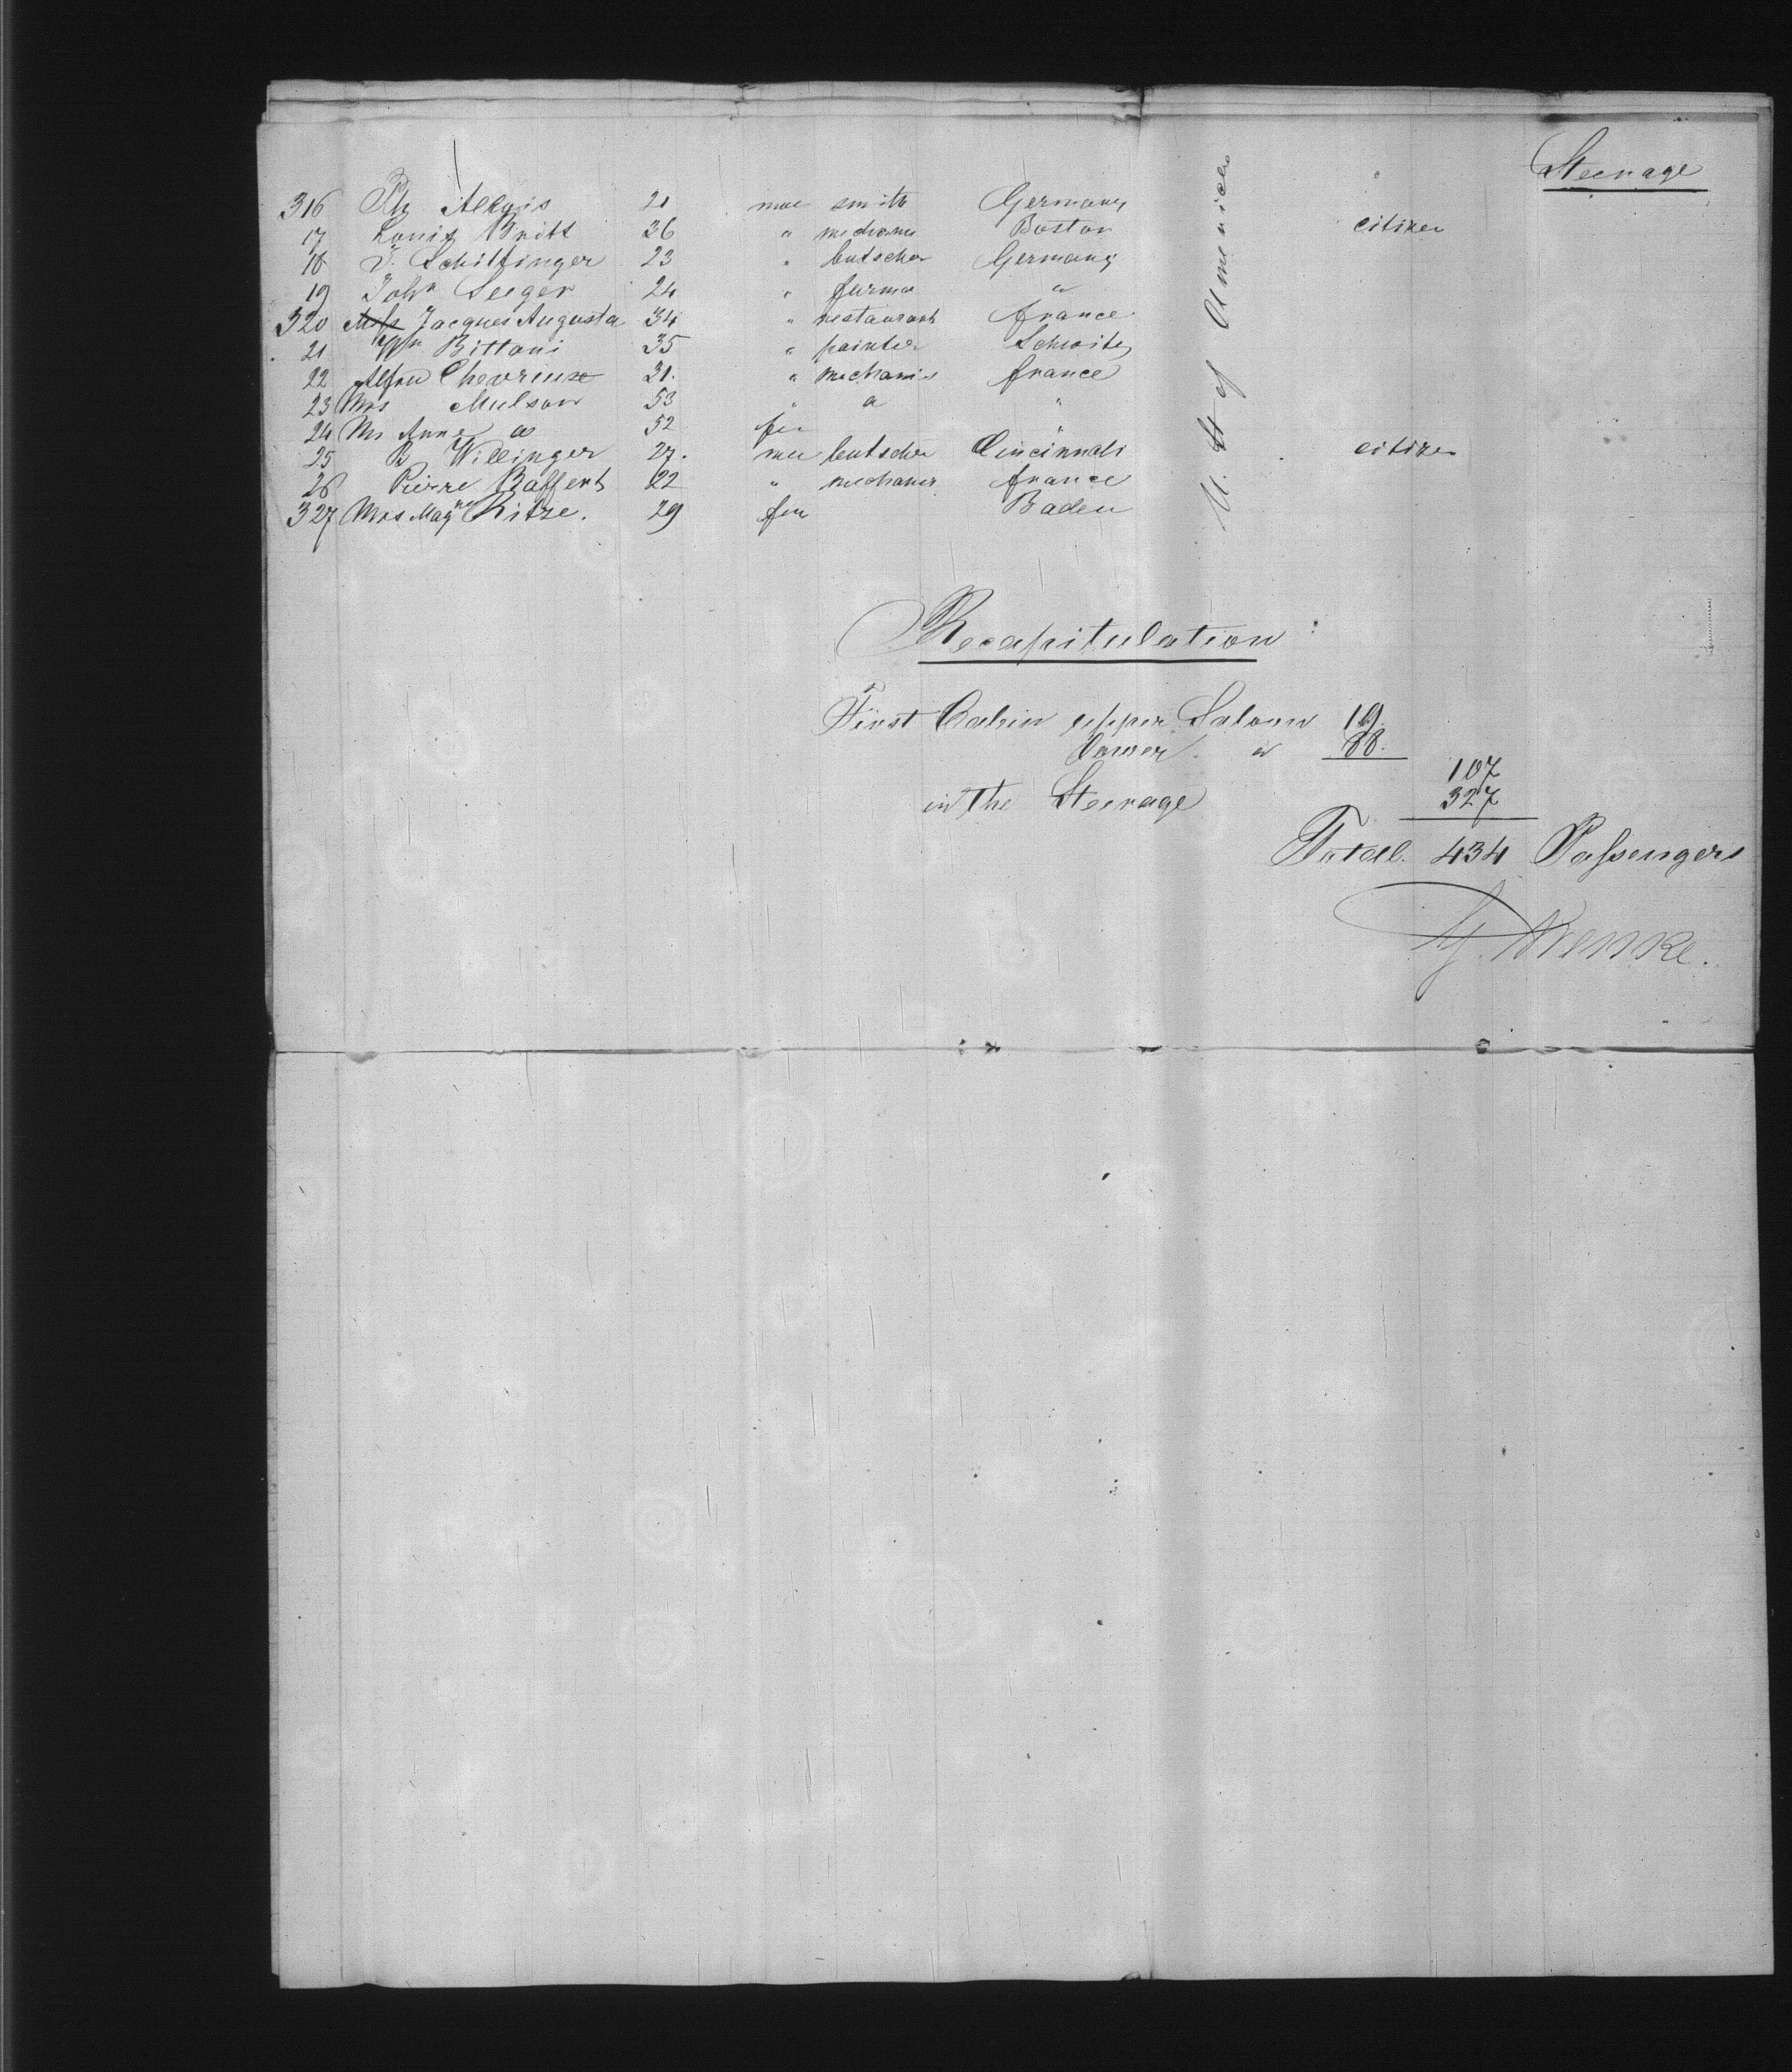 Steerage
316 Ph Allgis 21 mae smith Germany
17 Louis Britt 36 " mechanic Boston citizen
18 J. Schillinger 23 " butscher Germany
19 John Seeger 24 " farmer "
320 Miss Jacques Augusta 34 " restaurant france
21 Wm Bittoni 35 " painter Schweitz
22 Alfred Chevreuse 31. " mechanic france
23 Mrs Mulson 53 " " "
24 Mr Anne " 52 fem "
25 B Willinger 27. mae butscher Cincinnati citizen
26 Pierre Baffert 22 " mechanic france
327 Mrs Magne Ritze. 29 fem Baden
U. St of America
Recapitulation:
First Cabin upper Saloon 19.
Lower " 88.
107
in the Steerage 327
Total. 434 Passengers